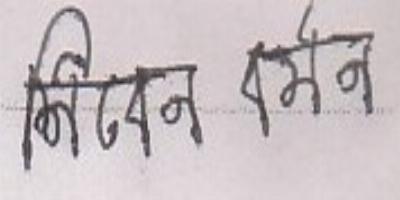 শিবেন বর্মন